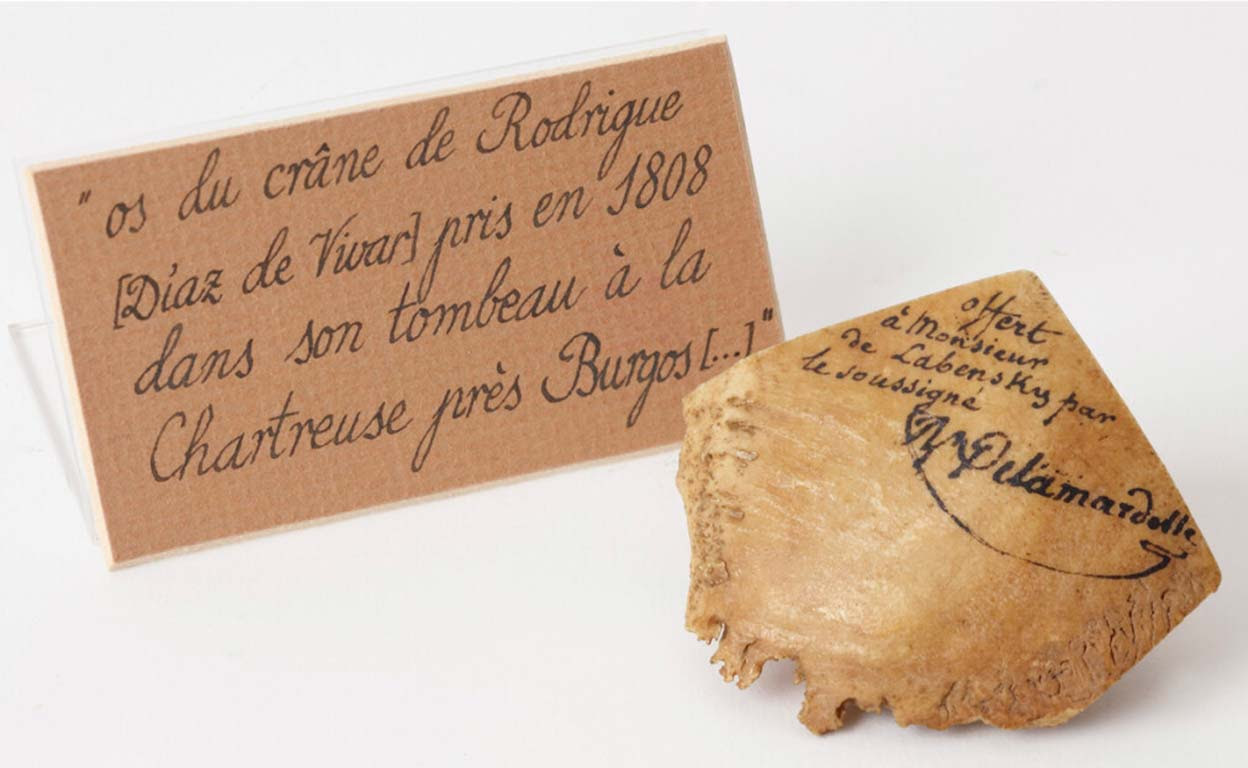 " os du crâne de Rodrigue
[Díaz de Vivar] pris en 1808
dans son tombeau à la
Chartreuse près Burgos [...] "
offert
à Monsieur
de Labensky par
le soussigné
Delamardelle